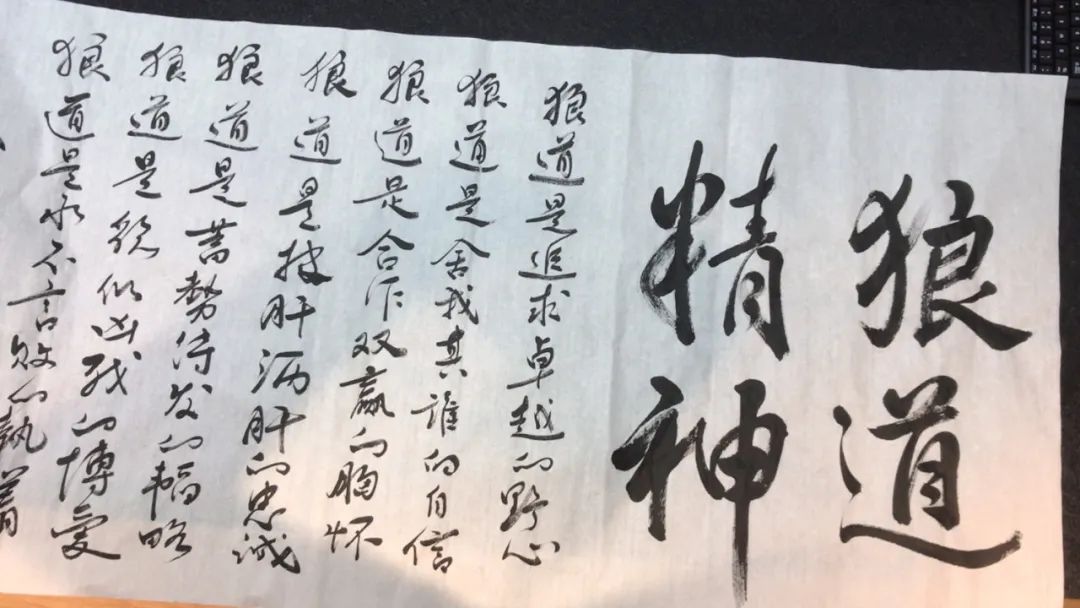 狼道
精神
狼道是追求卓越的野心
狼道是舍我其谁的自信
狼道是合作双赢的胸怀
狼道是披肝沥胆的忠诚
狼道是蓄势待发的韬略
狼道是貌似凶残的博爱
狼道是永不言败的执着